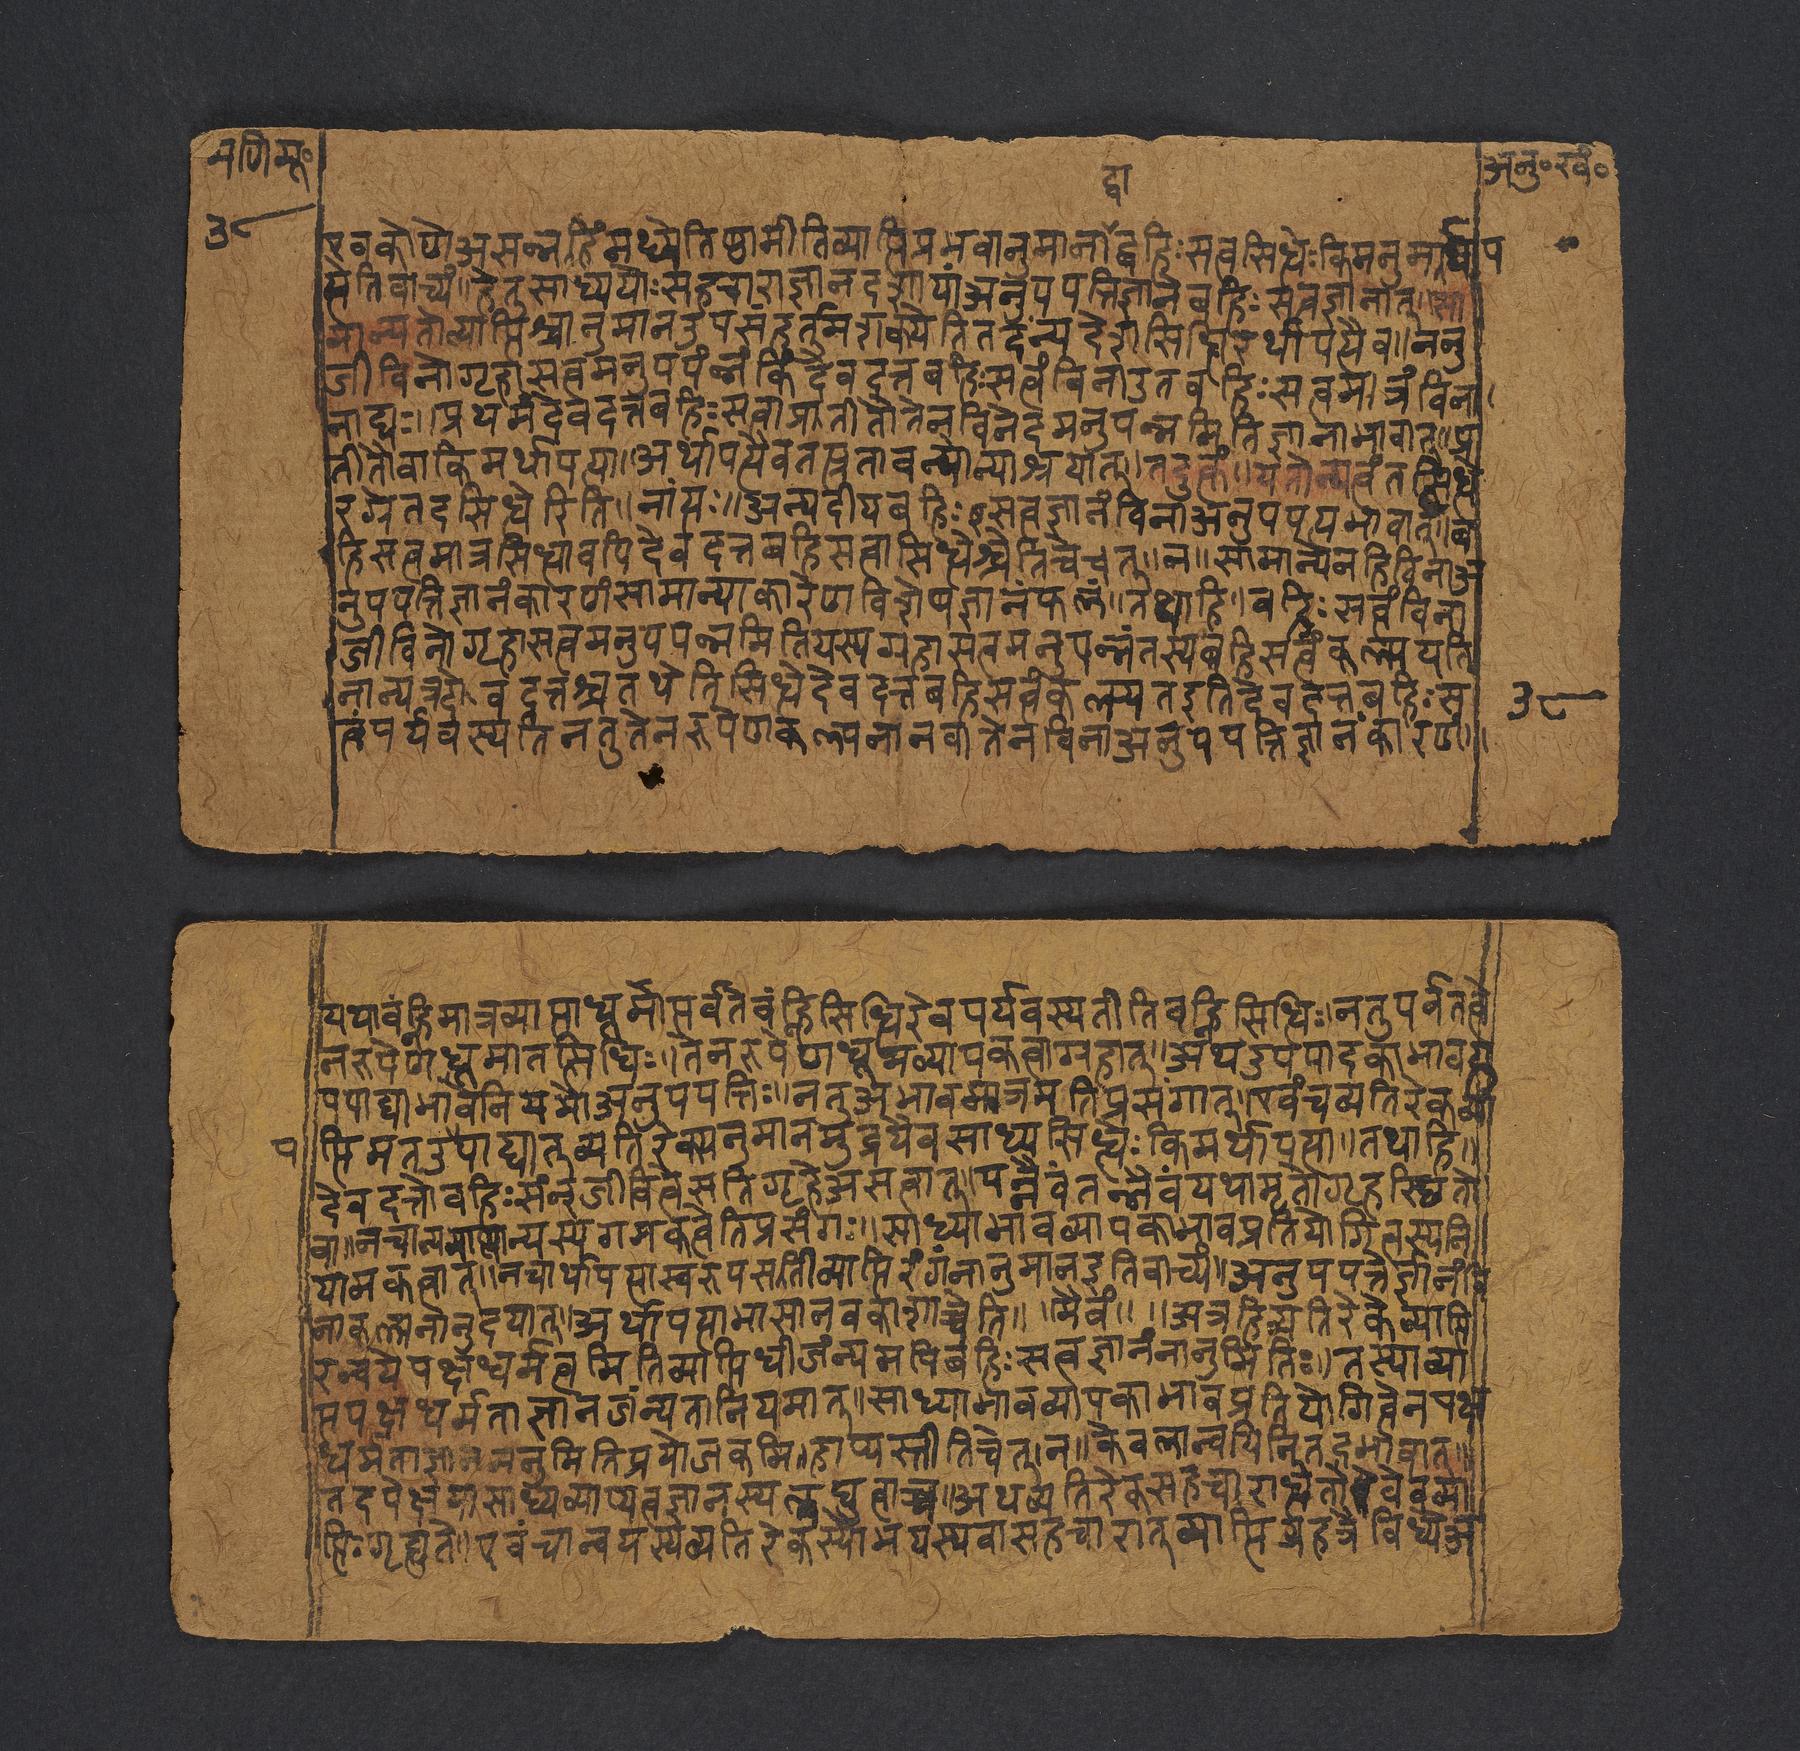 मणिमू॰
अनु॰खं॰
३८
द्वा
एवकोणेअसन्नर्हिमध्येतिष्ठामीतिव्याप्तिप्रभवानुमानाद्बहिःसत्वसिध्येःकिमनुमार्थाप
त्तेतिवाच्यं॥हेतुसाध्ययोःसहचाराज्ञानदशायांअनुपपत्तिज्ञानेवहिःसत्वज्ञानात्॥सा
मान्यतोव्याप्तिश्चानुमानउपसंहर्तुमशक्येतितदंन्यदेशसिद्धिरर्थापत्यैव॥ननु
जीविनोगृहासत्वमनुपपंन्नंकिंदेवदत्तबहिःसत्वंविनाउतबहिःसत्वमात्रंविना।
नाद्यः॥प्रथमंदेवदत्तबहिःसत्वाप्रातीतौतेनविनेदमनुपन्नमितिज्ञानाभावात्॥प्र
तीतौवाकिमर्थापत्या॥अर्थापत्यैवतत्प्रतावन्योन्याश्रयात्॥तदुक्तं॥यतोन्यत्वंतत्सिध्ये
रग्रेतदसिध्येरिति॥नांत्यः॥अन्यदीयबहिःसत्वज्ञानंविनाअनुपपत्यभावात्॥ब
हिसत्वमात्रसिध्यावपिदेवदत्तबहिसत्वासिध्येश्चेतिचेत्॥न॥सामान्येनहिविनाअ
नुपपत्तिज्ञानंकारणंसामान्याकारेणविशेषज्ञानंफलं॥तथाहि॥बहिःसत्वंविना
जीविनोगृहासत्वमनुपपन्नमितियस्यगृहासत्वमनुपन्नंतस्यबहिसत्वंकल्पयति
नान्यत्रदेवदत्तश्चतथेतिसिध्येदेवदत्तबहिसत्वंकल्प्यतइतिदेवदत्तबहिःस
त्वंपर्यवस्यतिनतुतेनरूपेणकल्पनानवातेनविनाअनुपपत्तिज्ञानंकारणं॥
३८
यथावंह्निमात्रव्याप्ताध्धूमोपर्वतेवंह्निसिध्धिरेवपर्यवस्यतीतिवह्निसिध्धिः॥नतुपर्वतत्वे
नरूपेणधूमातत्सिध्धिः॥तेनरूपेणधूमव्यापकत्वाग्रहात्॥अथउपपादकाभावउ
पपाद्याभावनियमोअनुपपत्तिः॥नतुअभावमात्रमतिप्रसंगात्॥एवंचव्यतिरेकव्या
प्तिमतउपाद्यातुव्यतिरेक्यनुमानमुद्रयैवसाध्यसिध्येःकिमर्थापत्या॥तथाहि॥
देवदत्तोबहिःसंन्जीवित्वेसतिगृहेअसत्वात्॥यन्नैवंतन्नैवंयथामृतोगृहस्थितो
वा॥नचान्यव्याप्तान्यस्यगमकत्वेतिप्रसंगः॥साध्याभावव्यापकाभावप्रतियोगित्वस्यनि
यामकत्वात्॥नचार्थापत्तास्वरूपसतीव्याप्तिरंगंनानुमानइतिवाच्यं॥अनुपपत्तेर्ज्ञानंवि
नाकल्पनानुदयात्॥अर्थापत्ताभासानवकाशाच्चेति॥मैवं॥अत्रहिव्यतिरेकेव्याप्ति
रन्वयेपक्षधर्मत्वमितिव्याप्तिधीजंन्यमपिबहिःसत्वज्ञानंनानुमितिः॥तस्याव्या
प्तपक्षधर्मताज्ञानजंन्यतानियमात्॥साध्याभावव्यापकाभावप्रतियोगित्वेनपक्ष
धर्मताज्ञानमनुमितिप्रयोजकमिहाप्यस्तीतिचेत्।न॥केवलान्वयिनितदभावात्॥
तदपेक्षयासाध्यव्याप्यत्वज्ञानस्यलघुत्वाच्च॥अथव्यतिरेकसहचाराध्धेतोरेवव्या
प्तिःगृह्यते॥एवंचान्वयस्यव्यतिरेकस्योभयस्यवासहचारातुव्याप्तिग्रहत्रैविध्यअ